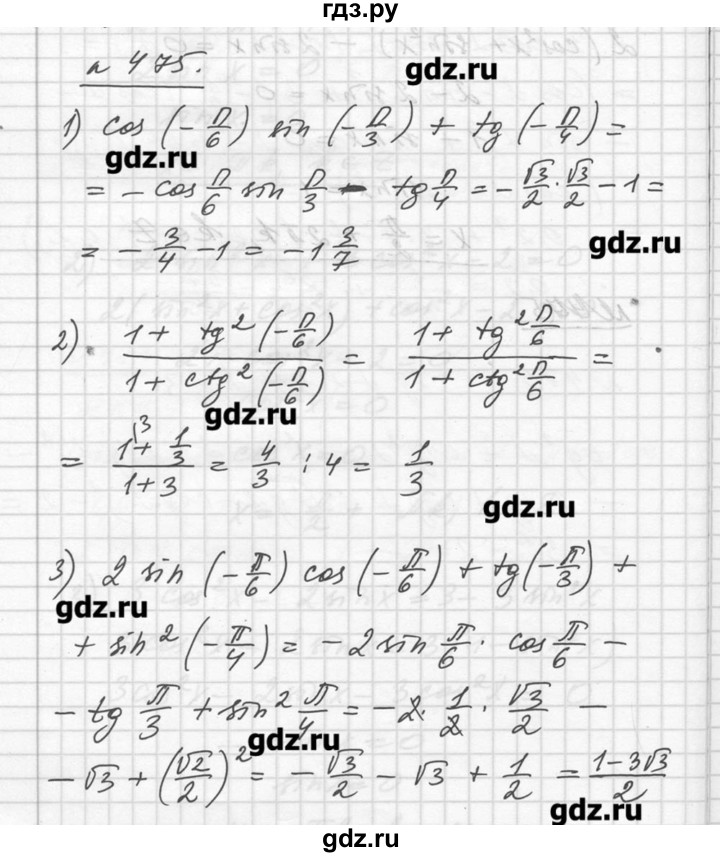 гдз.ру
n 475.
gdz.ru
1) cos (-π/6) sin (-π/3) + tg (-π/4) =
gdz.ru
= - cos π/6 sin π/3 - tg π/4 = - √3/2 · √3/2 - 1 =
gdz.ru
= - 3/4 - 1 = -1 3/7
2) (1 + tg² (-π/6)) / (1 + ctg² (-π/6)) = (1 + tg² π/6) / (1 + ctg² π/6) =
gdz.ru
= (1\³ + 1/3) / (1 + 3) = 4/3 : 4 = 1/3
gdz.ru
3) 2 sin (-π/6) cos (-π/6) + tg (-π/3) +
gdz.ru
+ sin² (-π/4) = - 2 sin π/6 · cos π/6 -
- tg π/3 + sin² π/4 = - 2 · 1/2 · √3/2 -
gdz.ru
- √3 + (√2/2)² = - √3/2 - √3 + 1/2 = (1-3√3)/2
gdz.ru
gdz.ru